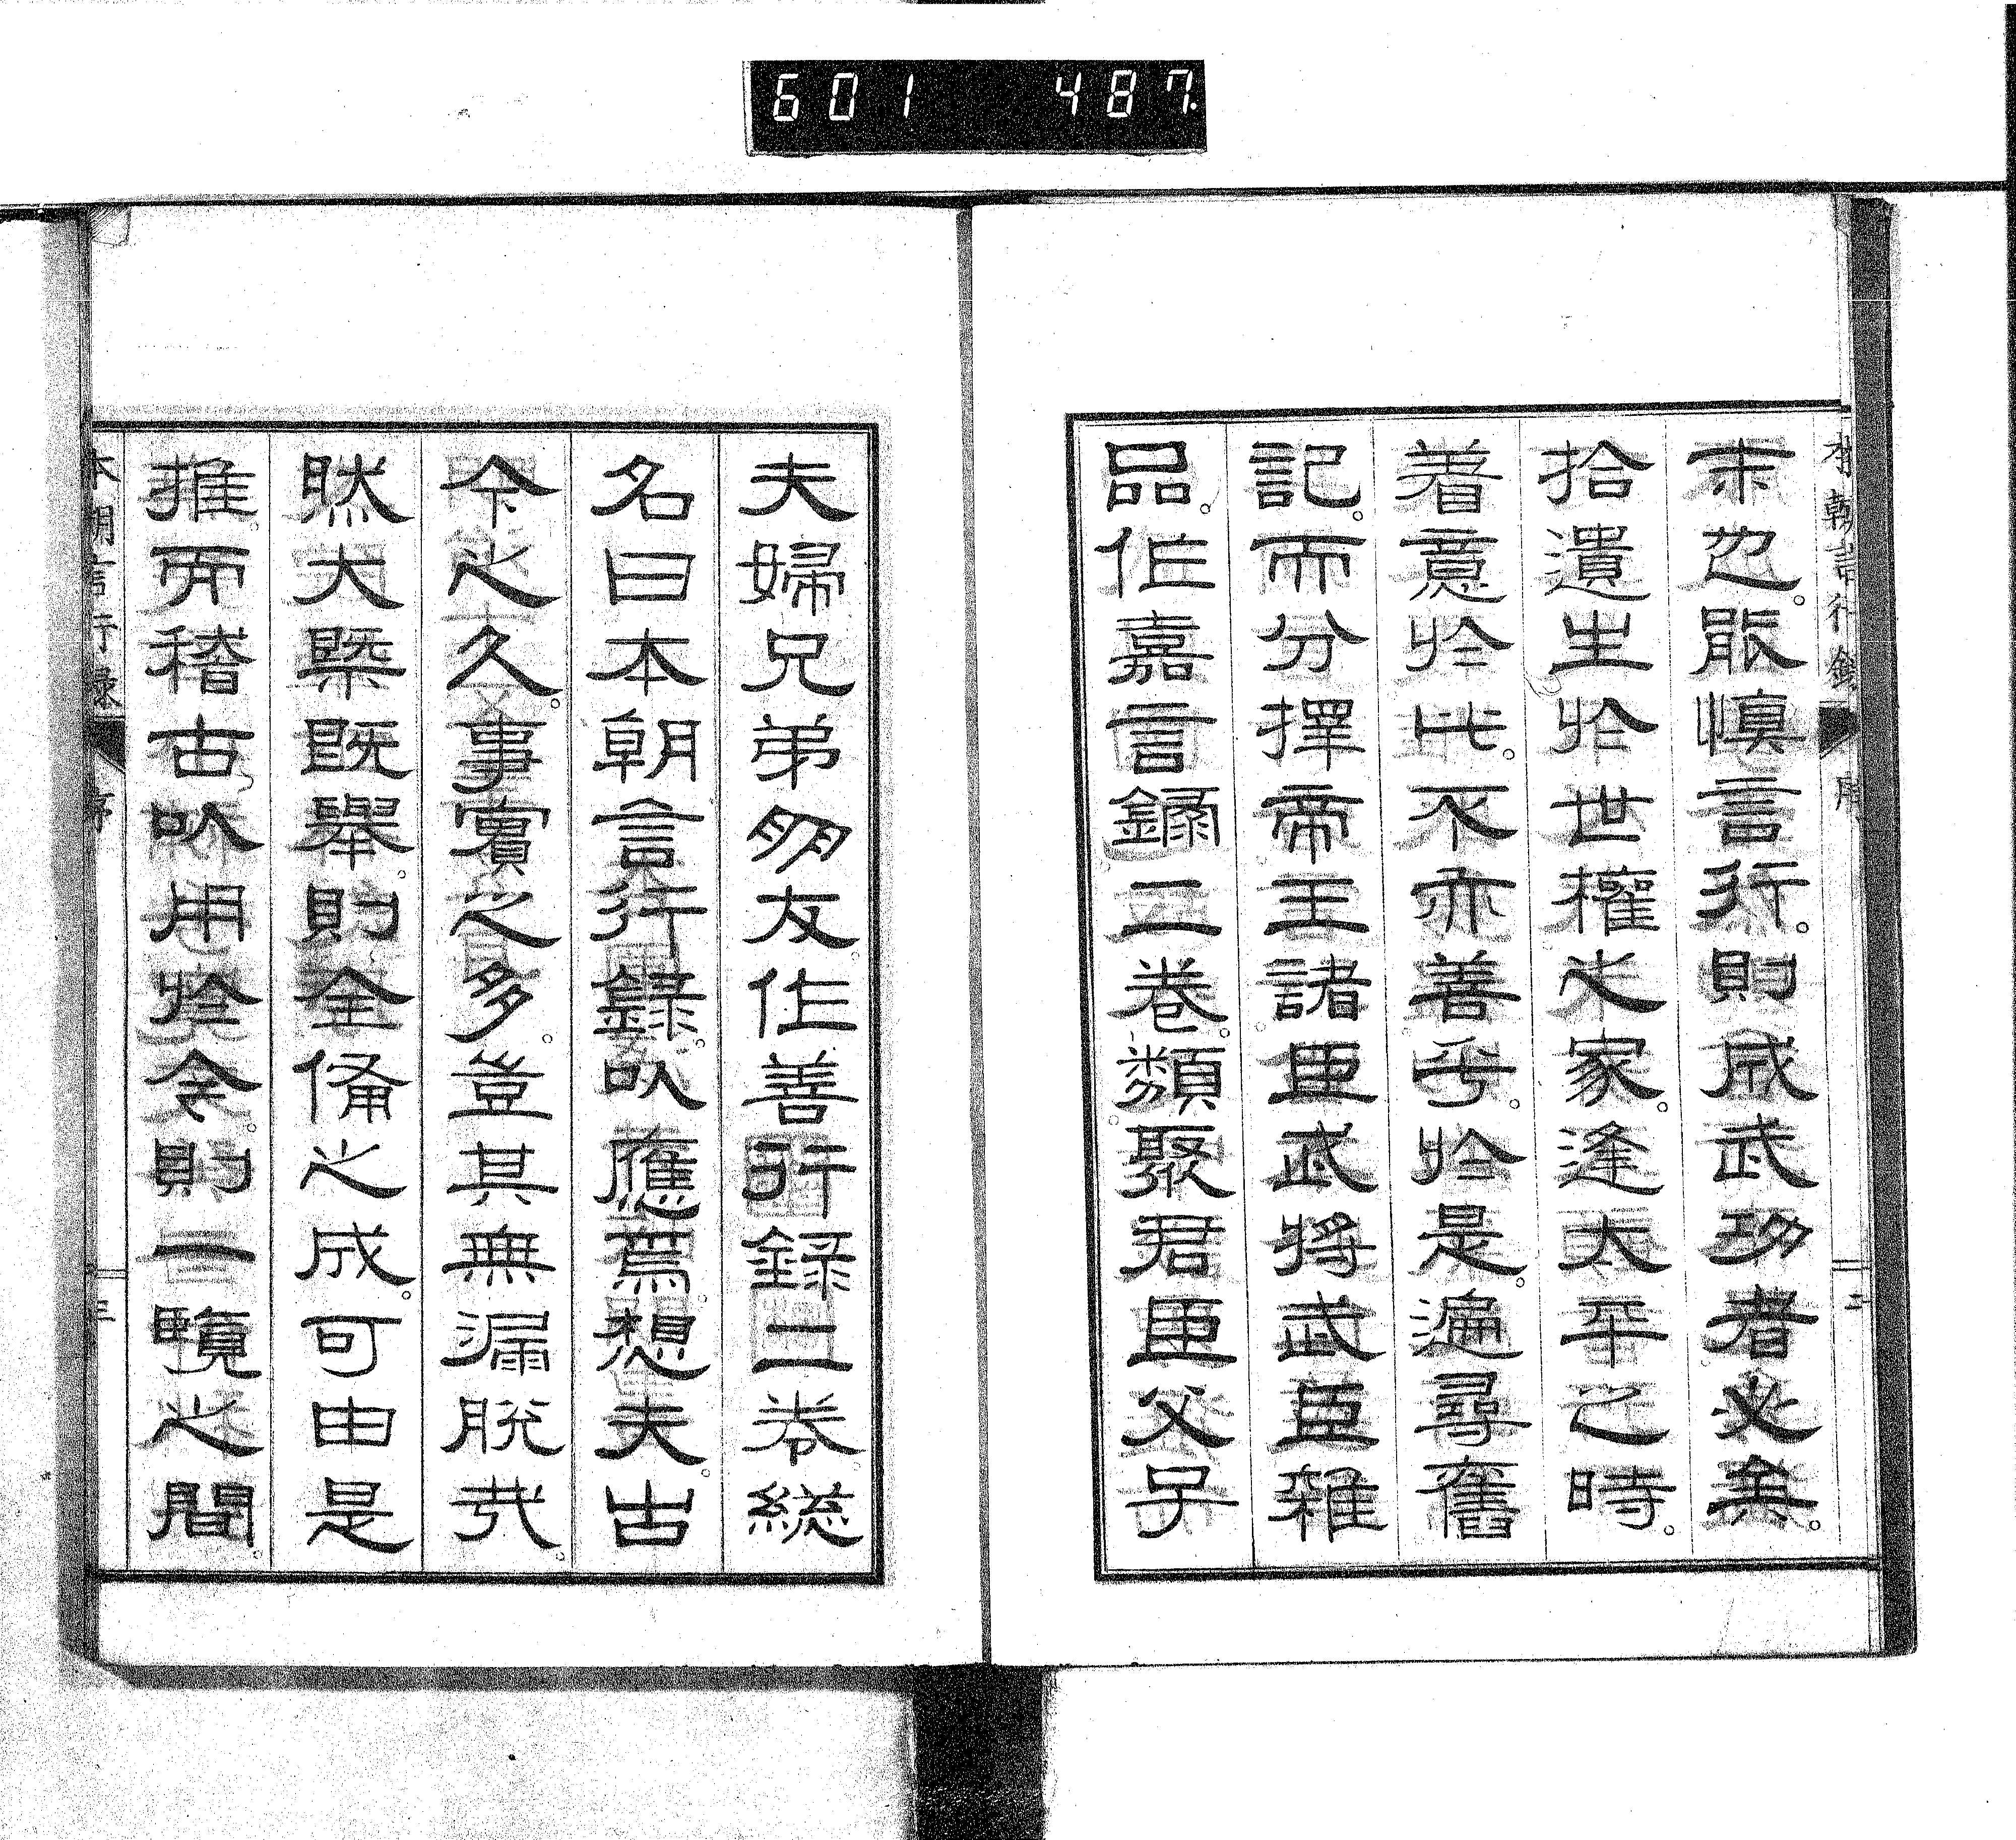 601 487
本朝言行録 序 二
末也能慎言行。則成武功者必矣。
拾遺生於世權之家。逢太平之時。
着意於此。不亦善乎。於是。遍尋舊
記。而分擇帝王諸臣武將武臣雜
品。作嘉言錄二卷。類聚君臣父子
夫婦兄弟朋友作善行録二卷総
名曰本朝言行録。以應焉想夫。古
今之久。事實之多。豈其無漏脫哉。
然大槩既舉。則全備之成。可由是
推而稽古以用於今。則一覽之間。
本朝言行録 序 三